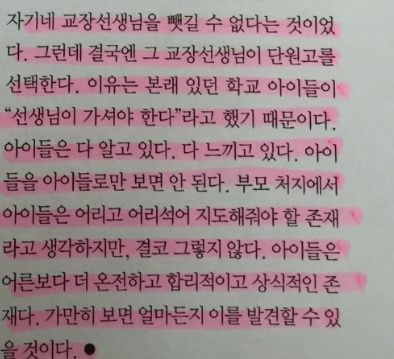 자기네 교장선생님을 뺏길 수 없다는 것이었
다. 그런데 결국엔 그 교장선생님이 단원고를
선택한다. 이유는 본래 있던 학교 아이들이
“선생님이 가셔야 한다”라고 했기 때문이다.
아이들은 다 알고 있다. 다 느끼고 있다. 아이
들을 아이들로만 보면 안 된다. 부모 처지에서
아이들은 어리고 어리석어 지도해줘야 할 존재
라고 생각하지만, 결코 그렇지 않다. 아이들은
어른보다 더 온전하고 합리적이고 상식적인 존
재다. 가만히 보면 얼마든지 이를 발견할 수 있
을 것이다. ●